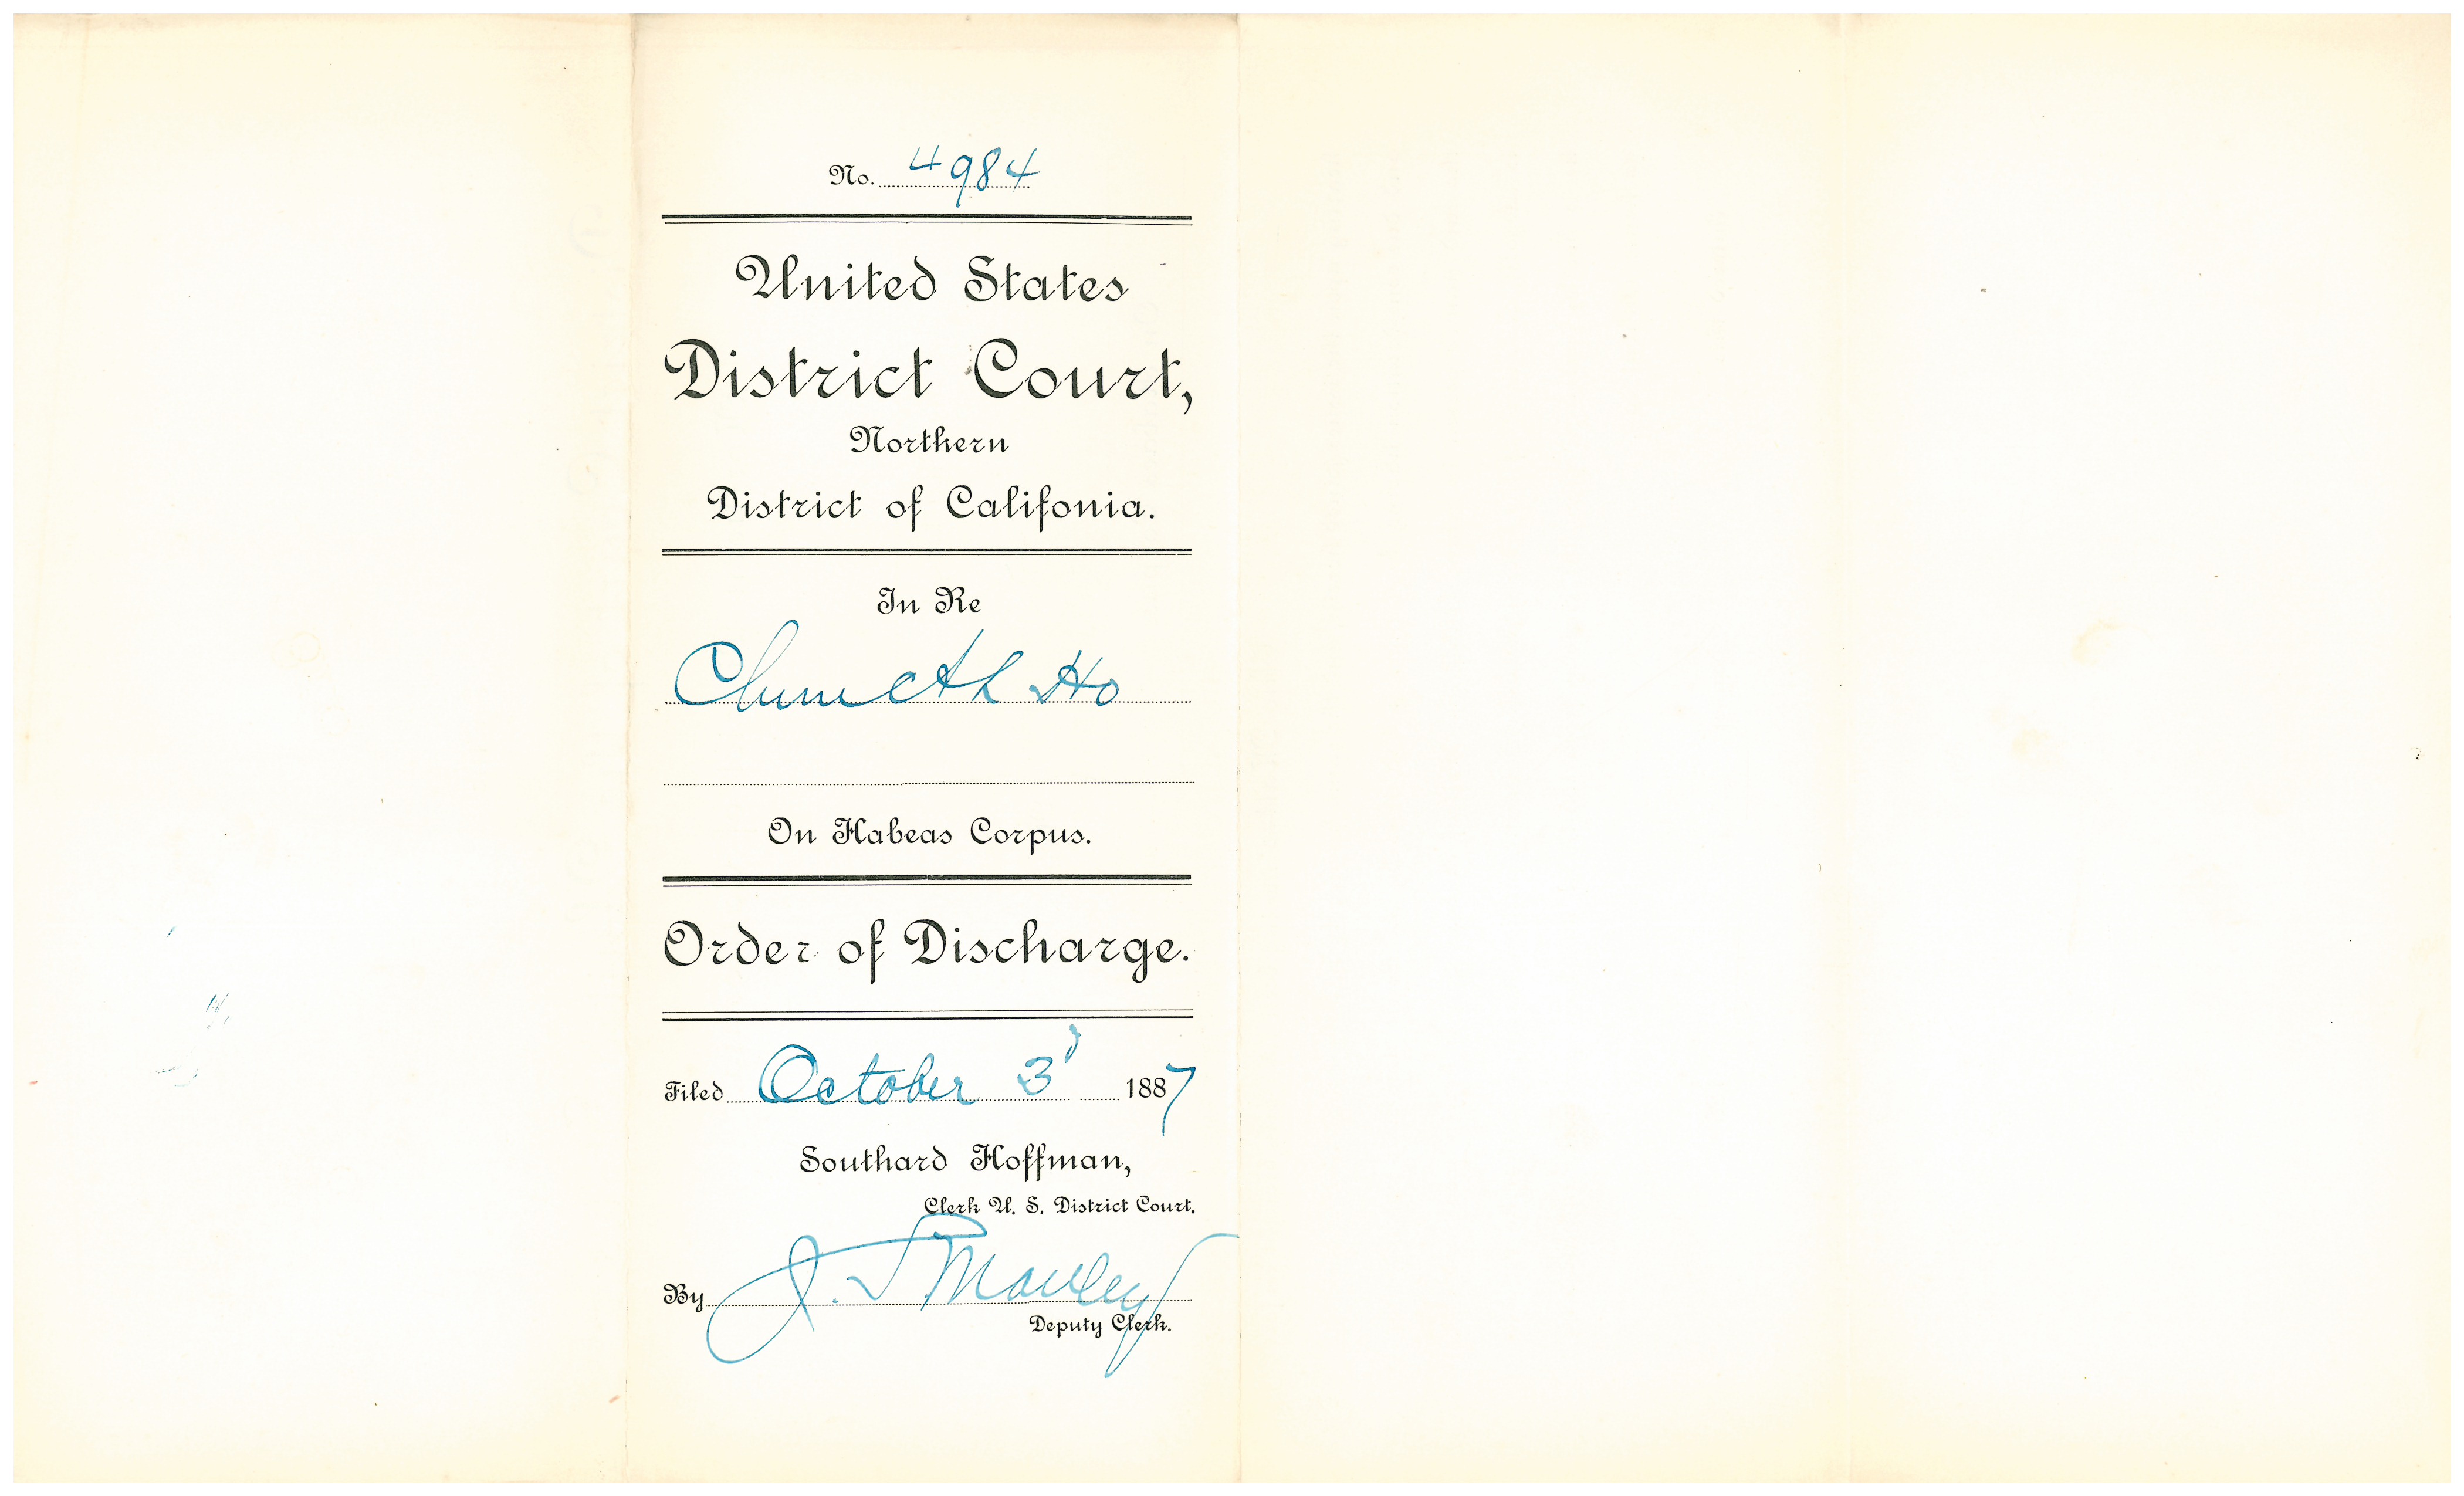 No. 4984
United States
District Court,
Northern
District of Califonia.
In Re
Chun Ah Ho
On Habeas Corpus.
Order of Discharge.
Filed October 3d 1887
Southard Hoffman,
Clerk U. S. District Court.
By J. S. Manley
Deputy Clerk.